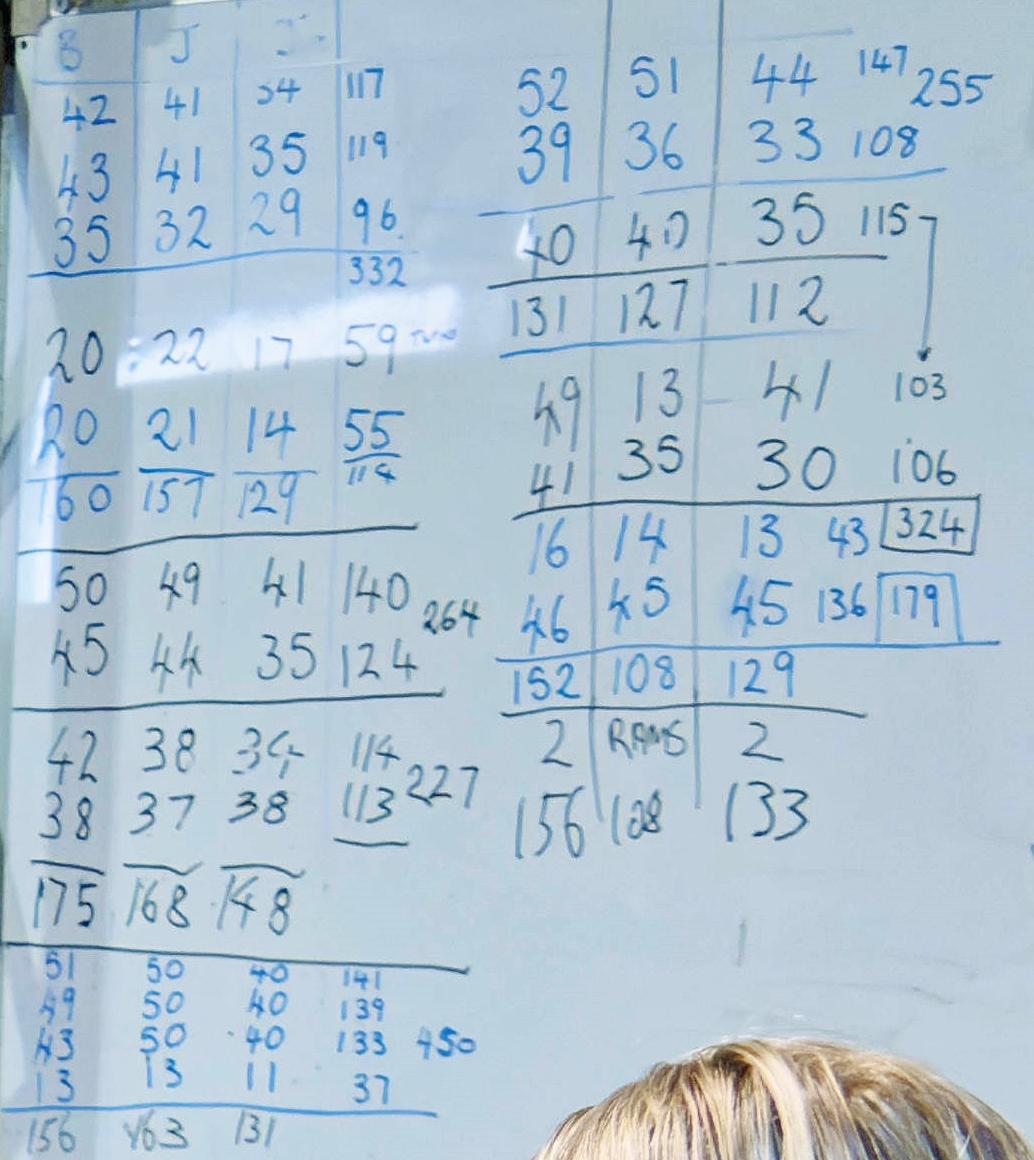 B J J
42 41 34 117
43 41 35 119
35 32 29 96
332
20 22 17 59
20 21 14 55
114
160 157 129
50 49 41 140
264
45 44 35 124
42 38 34 114
227
38 37 38 113
175 168 148
51 50 40 141
49 50 40 139
43 50 40 133 450
13 13 11 37
156 163 131
52 51 44 147 255
39 36 33 108
40 40 35 115
131 127 112
49 13 41 103
41 35 30 106
16 14 13 43 324
46 45 45 136 179
152 108 129
2 RAMS 2
156 108 133